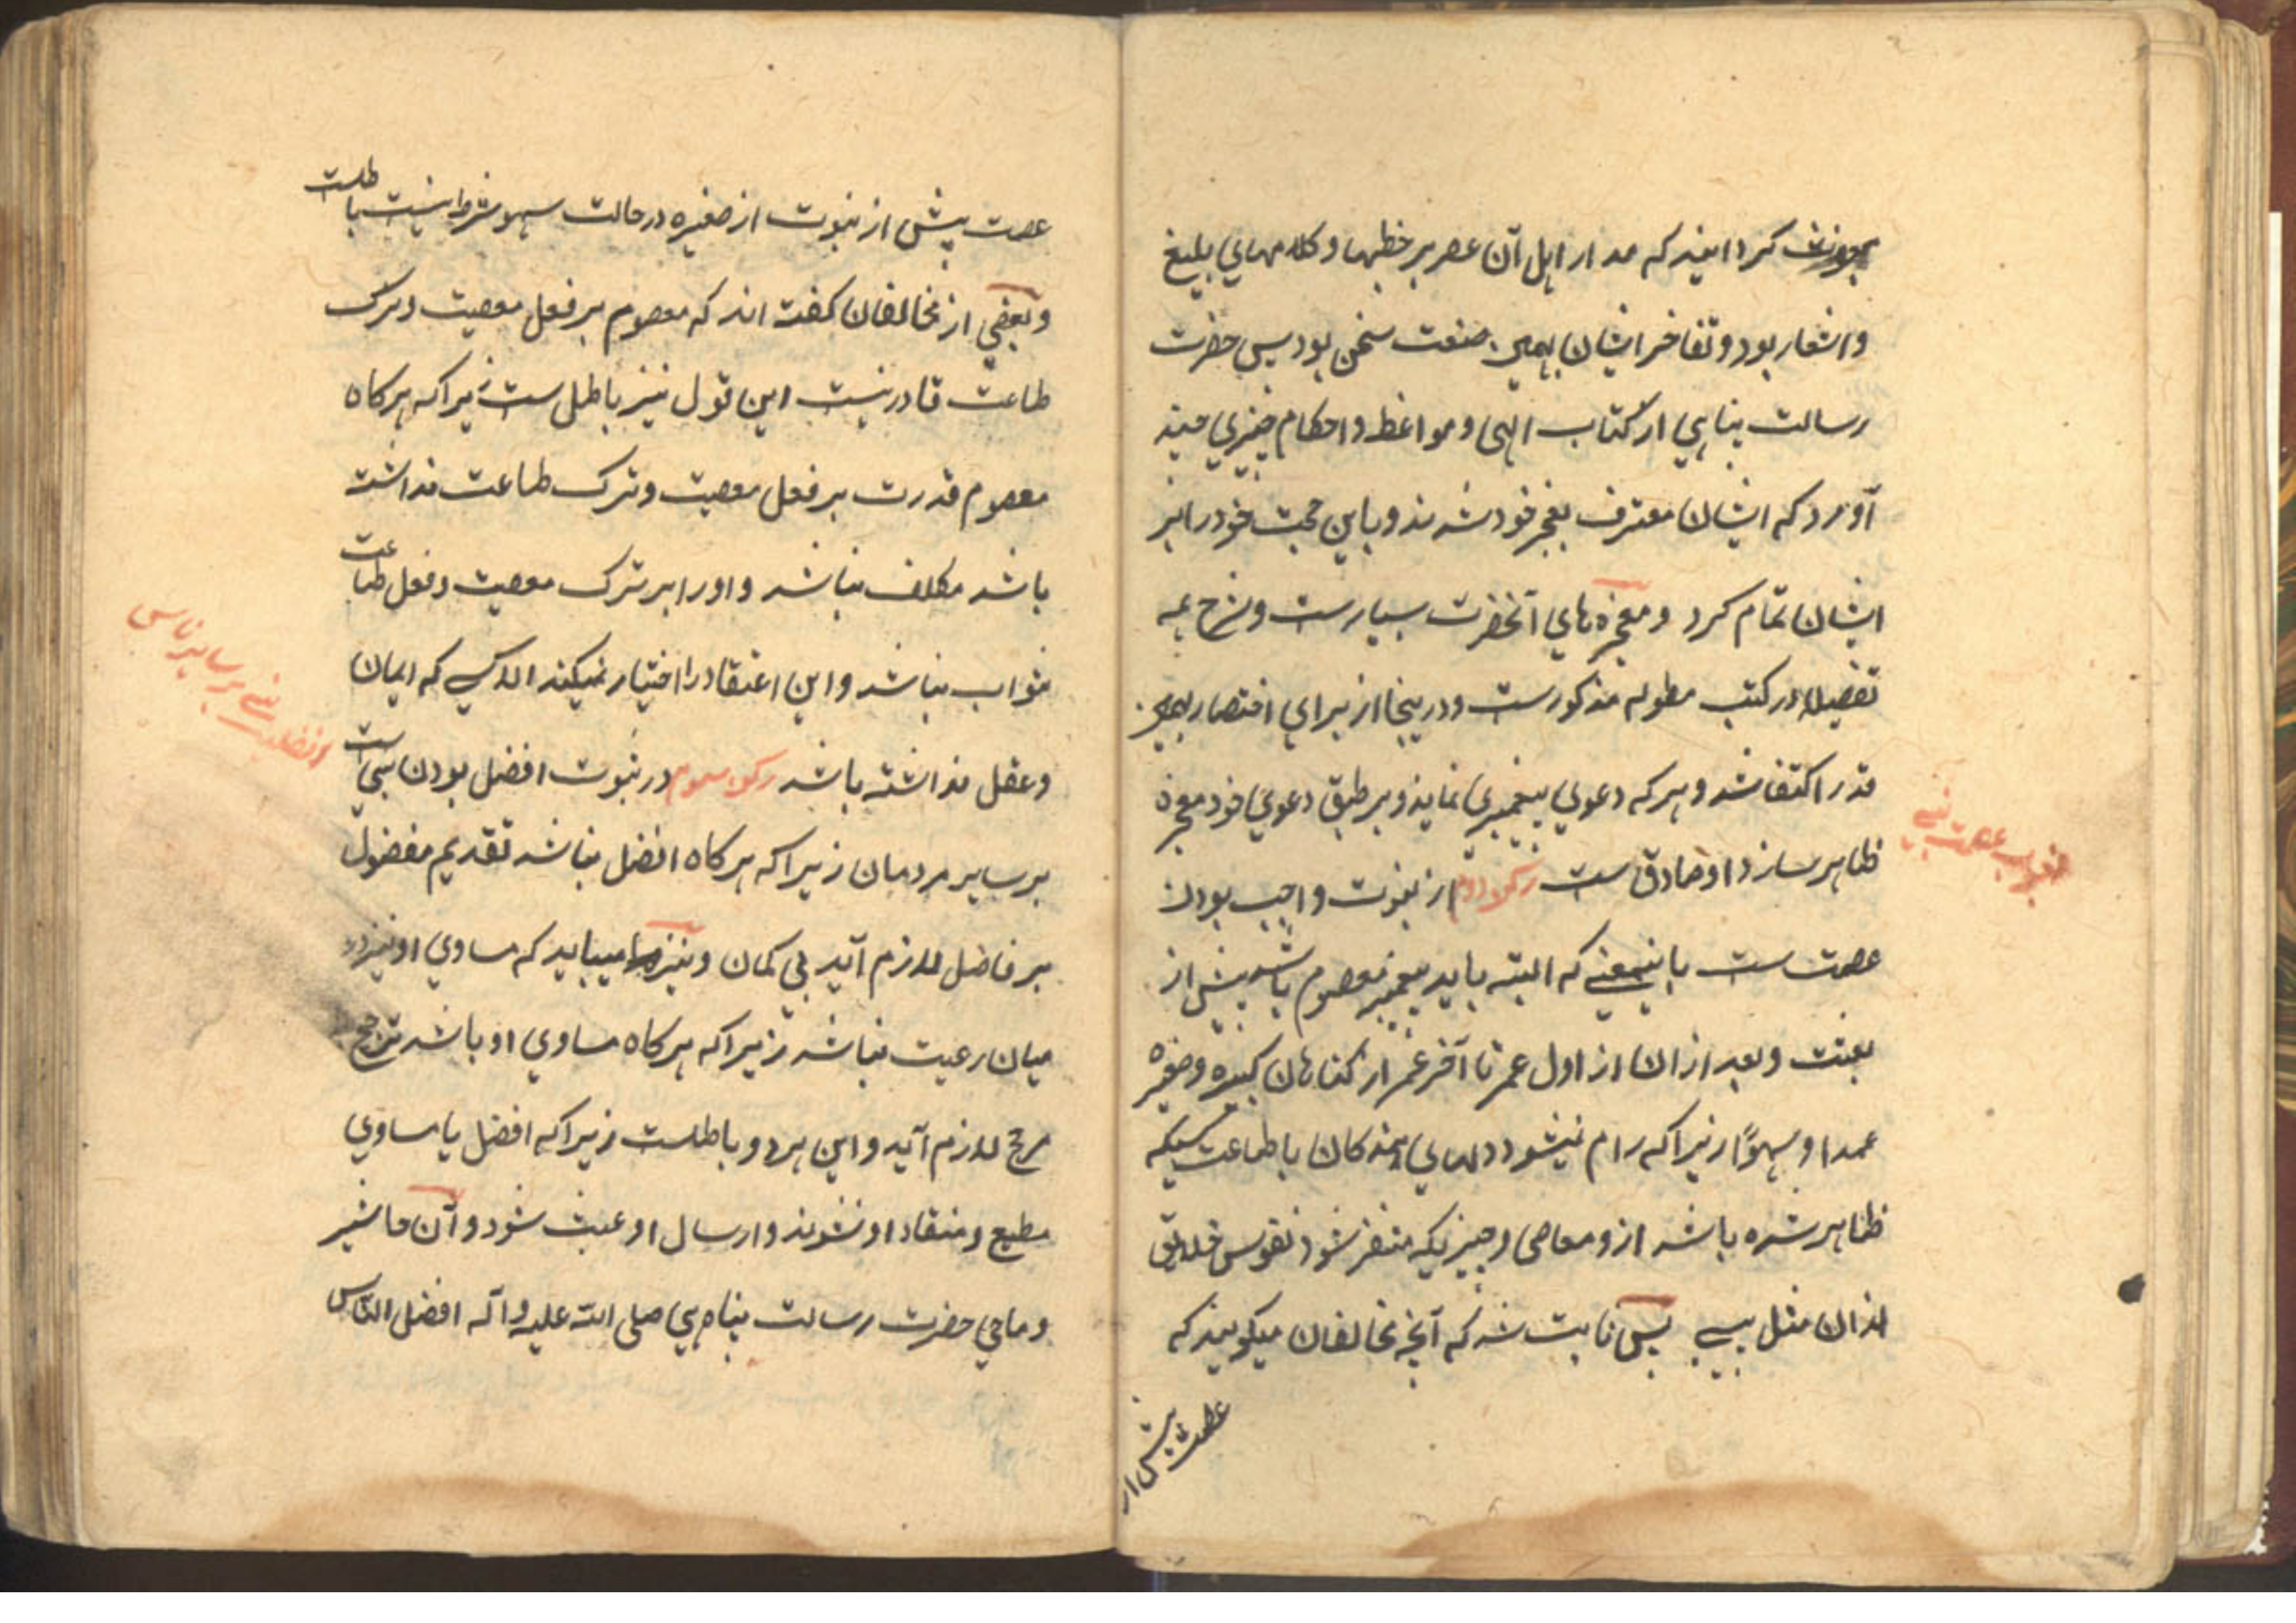 مبعوث گردانید که مدار اهل آن عصر بر خطبها و کلامهای بلیغ
و اشعار بود و تفاخر ایشان بهمین صنعت سخن بود پس حضرت
رسالت پناهی از کتاب الهی و مواعظ و احکام چیزی چند
آورد که ایشان معترف بعجز خود شدند و باین حجت خود را بر
ایشان تمام کرد و معجزه‌های آنحضرت بسیارست و شرح همه
تفصیلا در کتب مطوله مذکورست و درینجا از برای اختصار بهمین
قدر اکتفا شد و هر که دعوی پیغمبری نماید و بر طبق دعوی خود معجزه
ظاهر سازد او صادق ست رکن دوم از نبوت واجب بودن
عصمت ست باینمعنی که البته باید پیغمبر معصوم باشد پیش از
بعثت و بعد از ان از اول عمر تا آخر عمر از گناهان کبیره و صغیره
عمدا و سهوًا زیرا که رام نمیشود دلهای بندگان باطاعت کسیکه
ظاهر شده باشد ازو معاصی و چیزیکه متنفر شود نفوس خلایق
از ان مثل پس ثابت شد که آنچه مخالفان میگویند که
عصمت پیش از
وجوب عصمت نبی
عصمت پیش از نبوت از صغیره در حالت سهو شرط نیست باطلست
و بعضی از مخالفان گفته اند که معصوم بر فعل معصیت و ترک
طاعت قادر نیست این قول نیز باطل ست زیرا که هرکاه
معصوم قدرت بر فعل معصیت و ترک طاعت نداشته
باشد مکلف نباشد و او را بر ترک معصیت و فعل طاعت
ثواب نباشد و این اعتقاد را اختیار نمیکند الا کسی که ایمان
و عقل نداشته باشد رکن سوم در نبوت افضل بودن نبی است
بر سایر مردمان زیرا که هرکاه افضل نباشد تقدیم مفضول
بر فاضل لازم آید بی کمان و نیز میباید که مساوی او نیز در
میان رعیت نباشد زیرا که هرکاه مساوی او باشد ترجیح
مرجح لازم آید و این هردو باطلست زیرا که افضل یا مساوی
مطیع و منقاد او نشوند و ارسال او عبث شود و آن حاشر
و ماحی حضرت رسالت پناهی صلی الله علیه و آله افضل الناس
افضلیت نبی بر سایر ناس